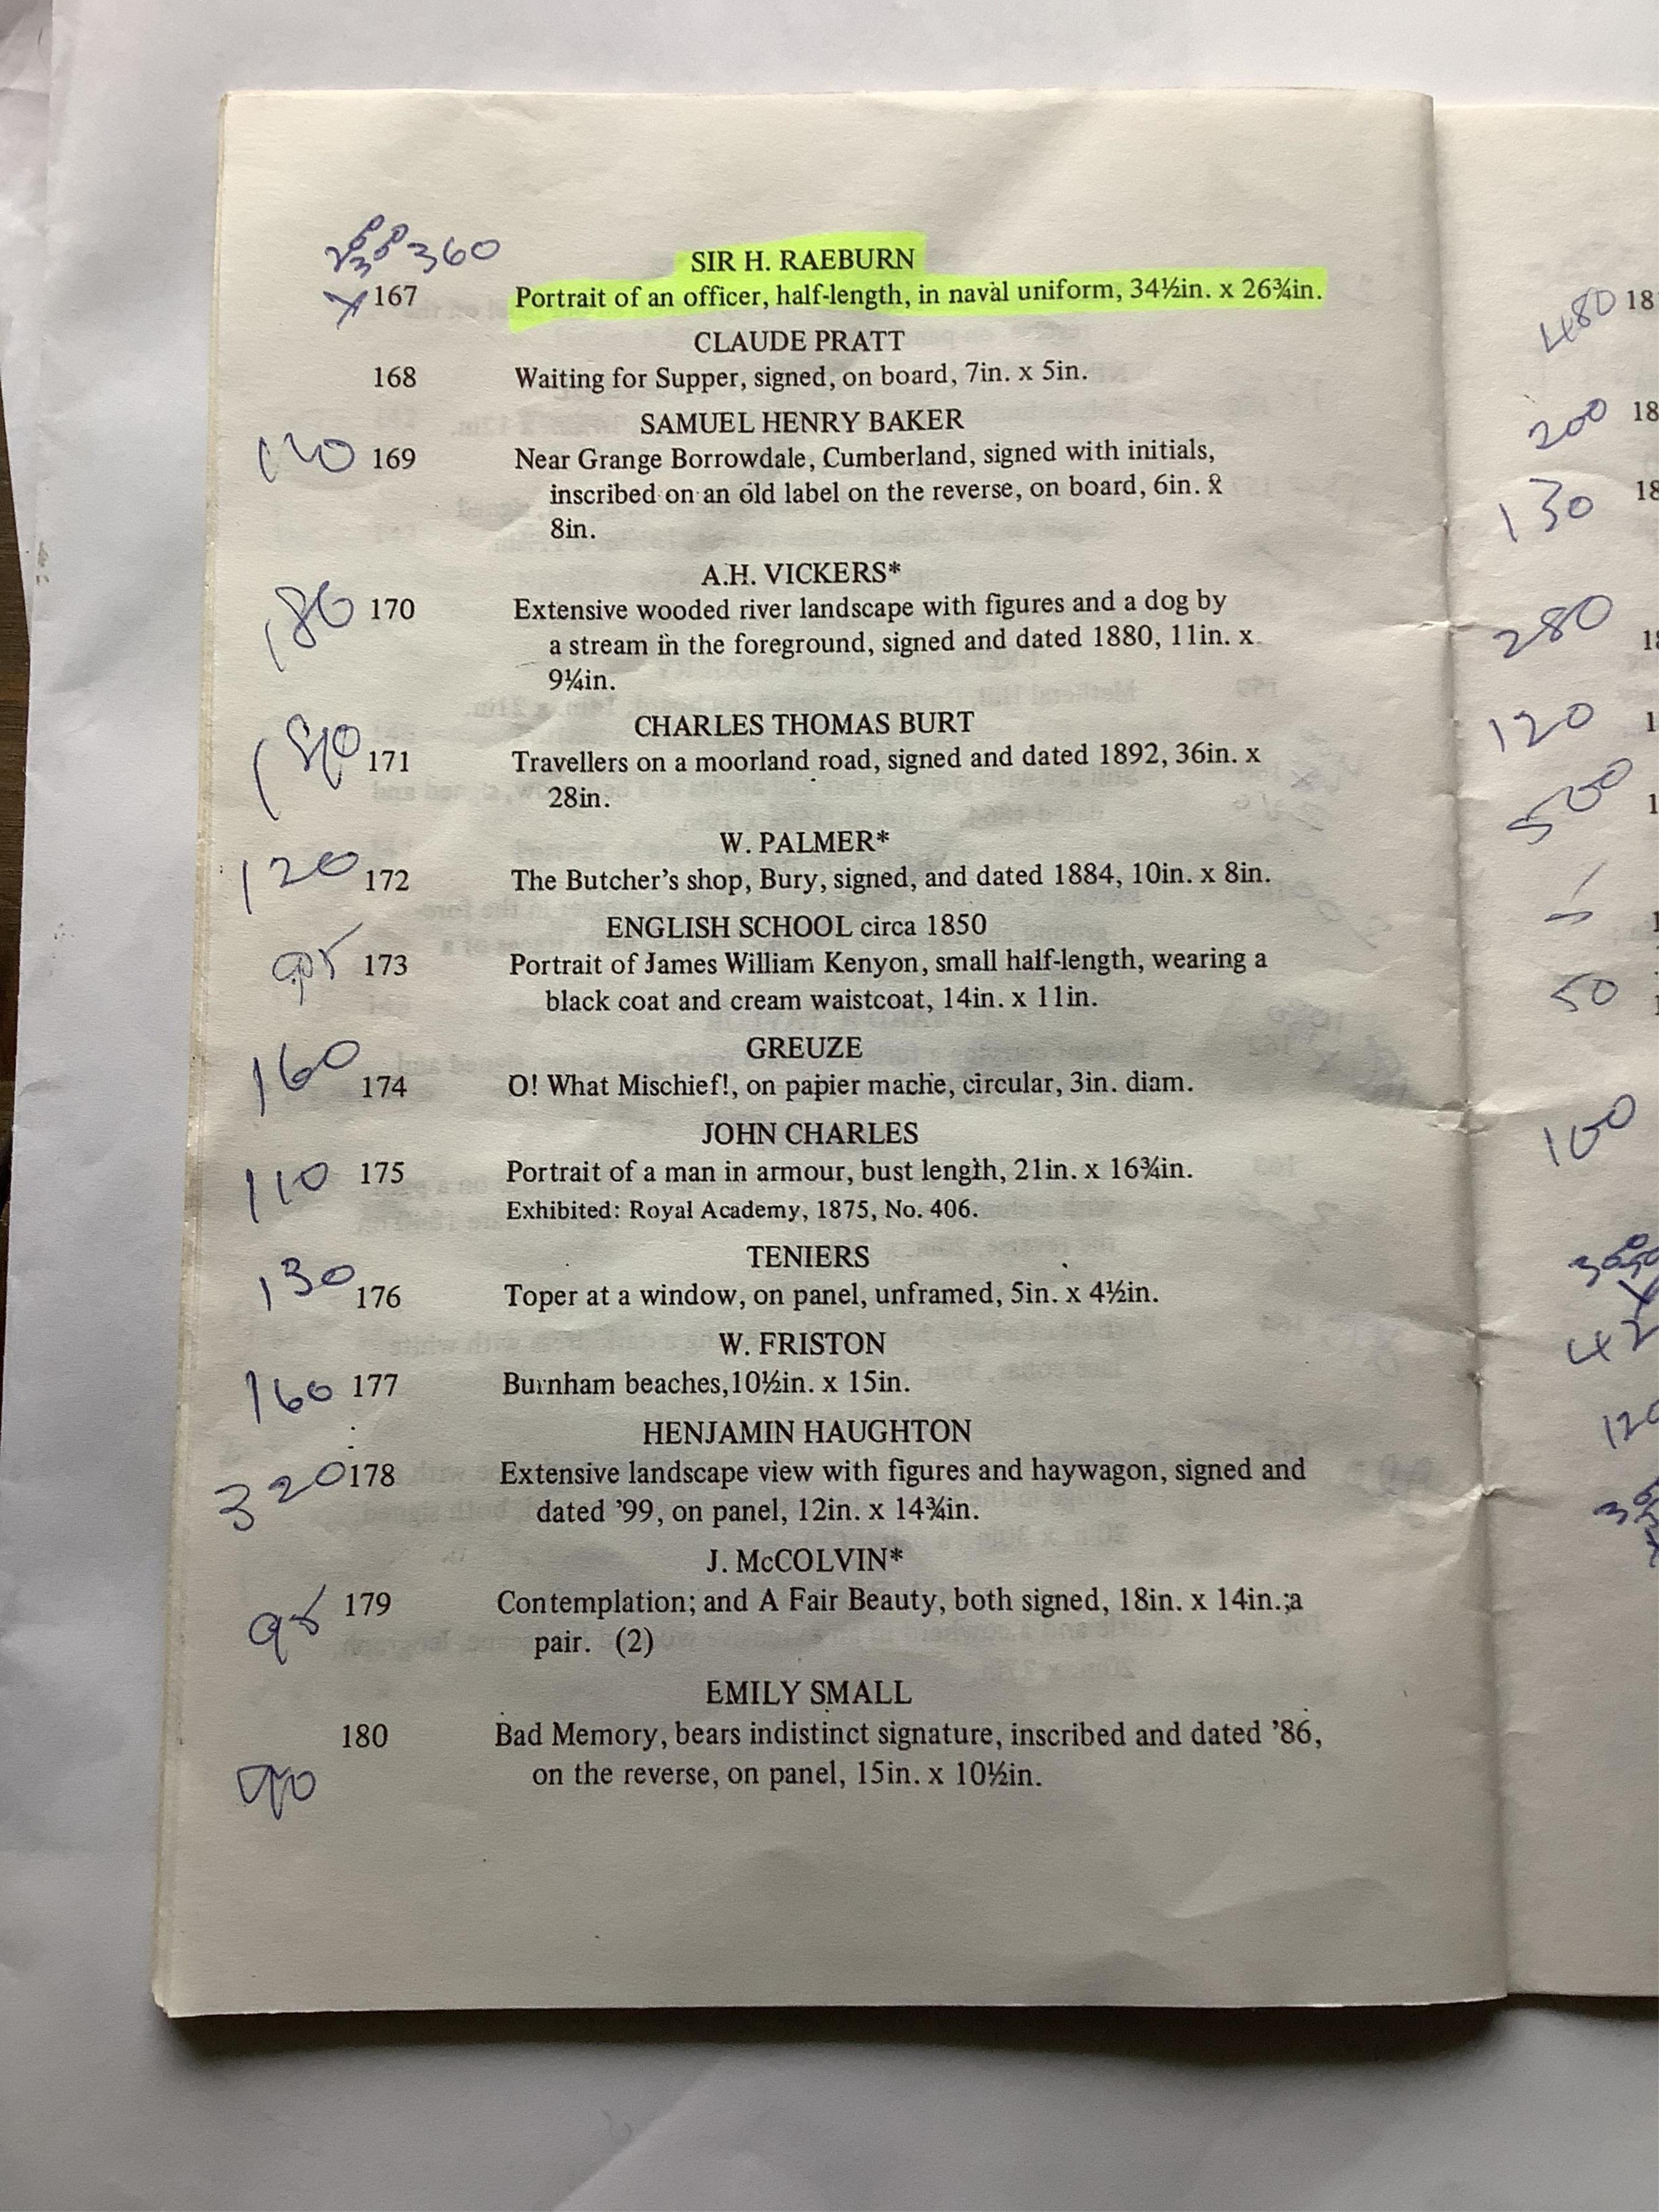 360
SIR H. RAEBURN
167 Portrait of an officer, half-length, in naval uniform, 34½in. x 26¾in.
CLAUDE PRATT
168 Waiting for Supper, signed, on board, 7in. x 5in.
SAMUEL HENRY BAKER
169 Near Grange Borrowdale, Cumberland, signed with initials,
inscribed on an old label on the reverse, on board, 6in. x
8in.
A.H. VICKERS*
180 170 Extensive wooded river landscape with figures and a dog by
a stream in the foreground, signed and dated 1880, 11in. x
9¼in.
CHARLES THOMAS BURT
171 Travellers on a moorland road, signed and dated 1892, 36in. x
28in.
W. PALMER*
120 172 The Butcher's shop, Bury, signed, and dated 1884, 10in. x 8in.
ENGLISH SCHOOL circa 1850
173 Portrait of James William Kenyon, small half-length, wearing a
black coat and cream waistcoat, 14in. x 11in.
GREUZE
160 174 O! What Mischief!, on papier mache, circular, 3in. diam.
JOHN CHARLES
110 175 Portrait of a man in armour, bust length, 21in. x 16¾in.
Exhibited: Royal Academy, 1875, No. 406.
TENIERS
130 176 Toper at a window, on panel, unframed, 5in. x 4½in.
W. FRISTON
160 177 Burnham beaches,10½in. x 15in.
HENJAMIN HAUGHTON
320 178 Extensive landscape view with figures and haywagon, signed and
dated '99, on panel, 12in. x 14¾in.
J. McCOLVIN*
95 179 Contemplation; and A Fair Beauty, both signed, 18in. x 14in.;a
pair. (2)
EMILY SMALL
180 Bad Memory, bears indistinct signature, inscribed and dated '86,
on the reverse, on panel, 15in. x 10½in.
480
200
130
280
120
500
50
100